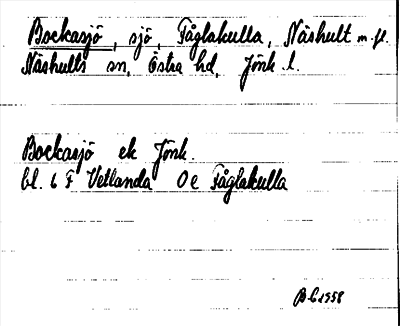 Bockasjö, sjö, Fåglakulla, Näshult m. fl.
Näshults sn, Östra hd, Jönk l.
Bockasjö ek Jönk.
bl. 6 F Vetlanda Oe Fåglakulla
BE 1958